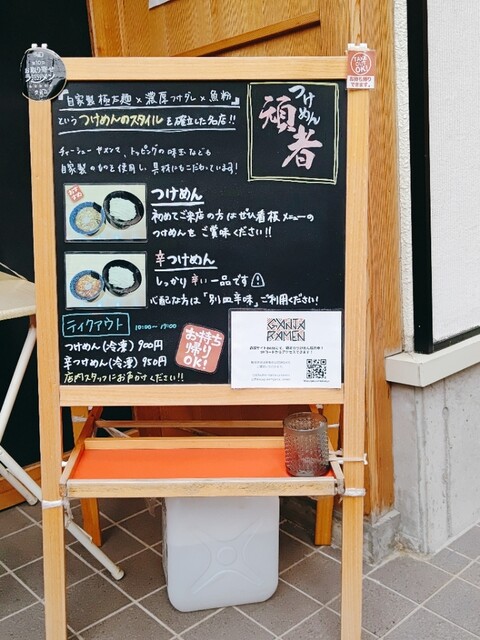 第10回
お取り寄せ
ラーメン
TAKE OUT
OK!
お持ち帰り
できます。
『自家製極太麺×濃厚つけダレ×魚粉』
というつけめんのスタイルを確立した名店!!
つけめん
頑者
チャーシュー、メンマ、トッピングの味玉なども
自家製のものを使用し、具材にもこだわっています!
つけめん
初めてご来店の方はぜひ看板メニューの
つけめんをご賞味ください!!
辛つけめん
しっかり辛い一品です
心配な方は「別皿辛味」ご利用ください!
テイクアウト 10:00~19:00
つけめん(冷凍) 900円
辛つけめん(冷凍) 950円
店内スタッフにお声がけください!!
お持ち
帰り
OK!
GANJA
RAMEN